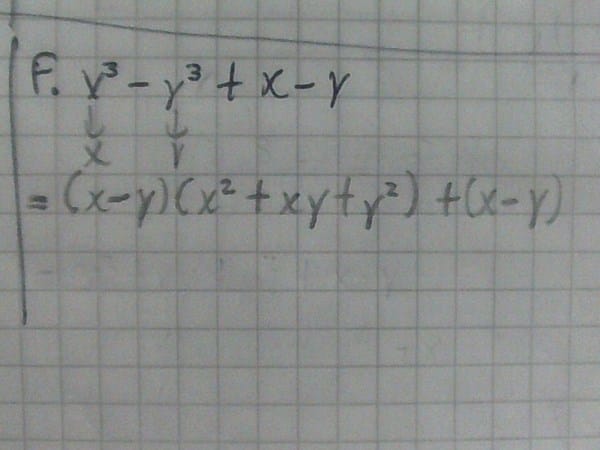 F. x³ - y³ + x - y
↓ ↓
x y
= (x-y)(x² + xy + y²) + (x-y)